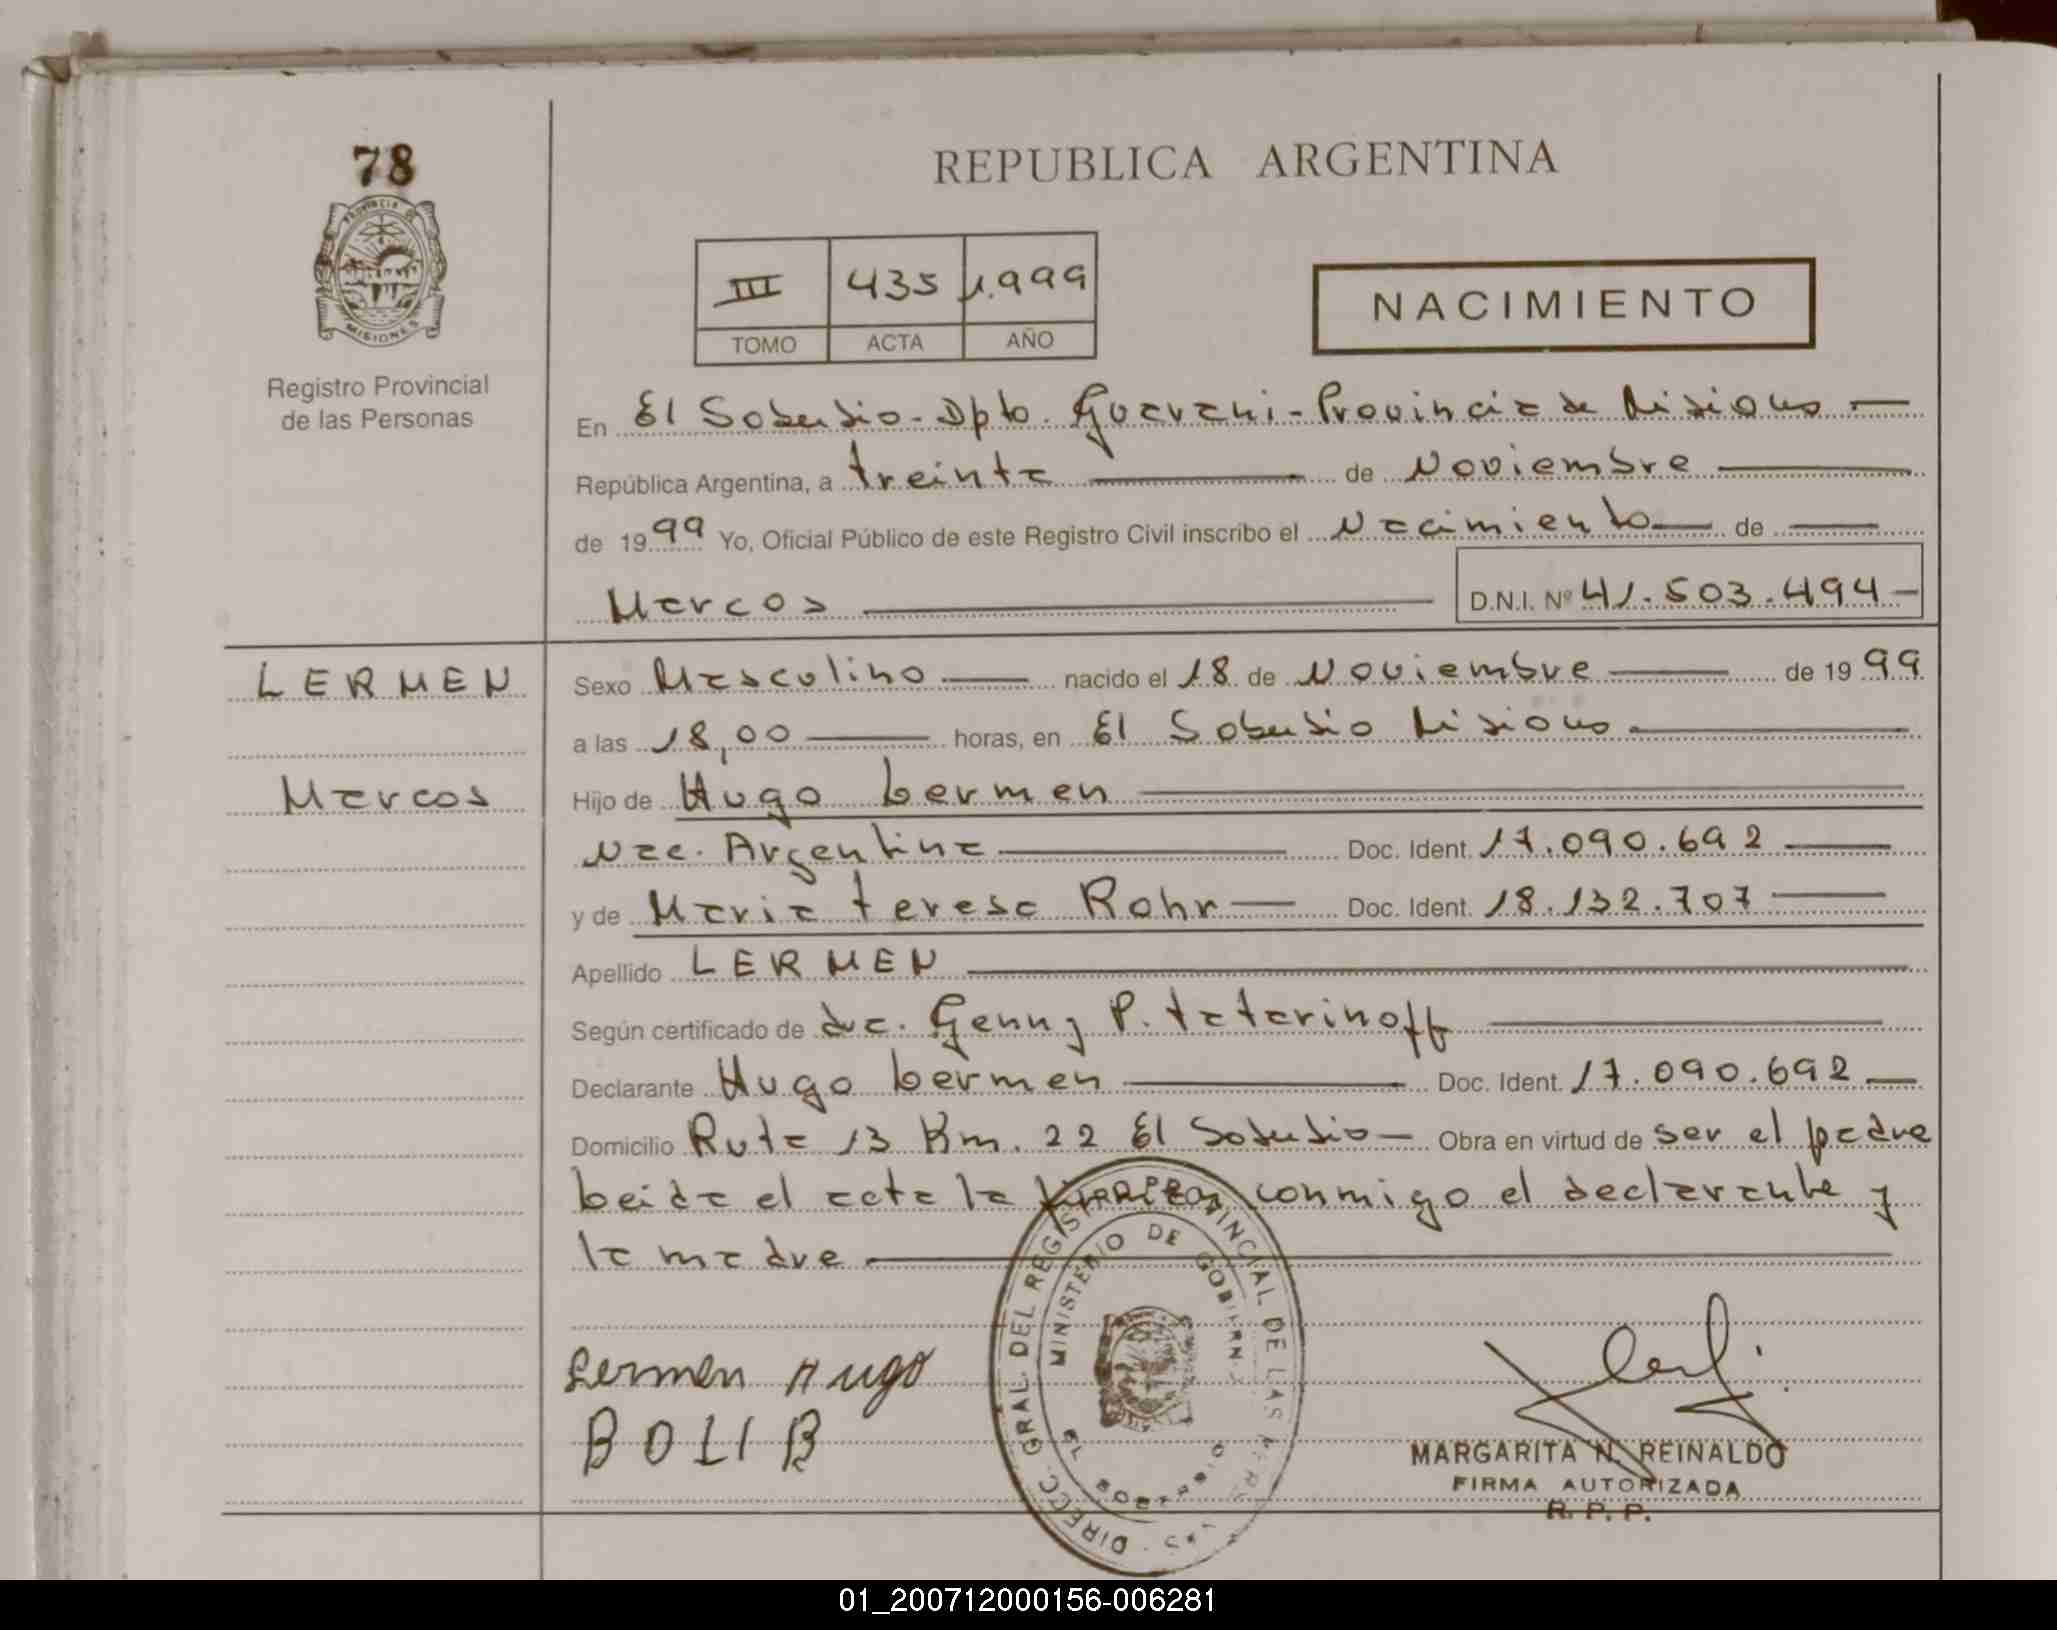 78
PROVINCIA DE
MISIONES
Registro Provincial
de las Personas
REPUBLICA ARGENTINA
III 435 1.999
TOMO ACTA AÑO
NACIMIENTO
En El Soberbio - Dpto. Guarani - Provincia de Misiones
República Argentina, a treinta de Noviembre
de 1999 Yo, Oficial Público de este Registro Civil inscribo el Nacimiento de
Marcos D.N.I. Nº 41.503.494
LERMEN
Marcos
Sexo Masculino nacido el 18 de Noviembre de 1999
a las 18,00 horas, en El Soberbio Misiones
Hijo de Hugo Lermen
Nac. Argentina Doc. Ident. 17.090.692
y de Maria Teresa Rohr Doc. Ident. 18.132.707
Apellido LERMEN
Según certificado de dra. Genny P. Tatarinoff
Declarante Hugo Lermen Doc. Ident. 17.090.692
Domicilio Ruta 13 Km. 22 El Soberbio Obra en virtud de ser el padre
Leida el acta la firman conmigo el declarante y
la madre
DIRECC. GRAL. DEL REGISTRO PROVINCIAL DE LAS PERSONAS
MINISTERIO DE GOBIERNO
EL SOBERBIO
Lermen Hugo
MARGARITA N. REINALDO
FIRMA AUTORIZADA
R. P. P.
01_200712000156-006281